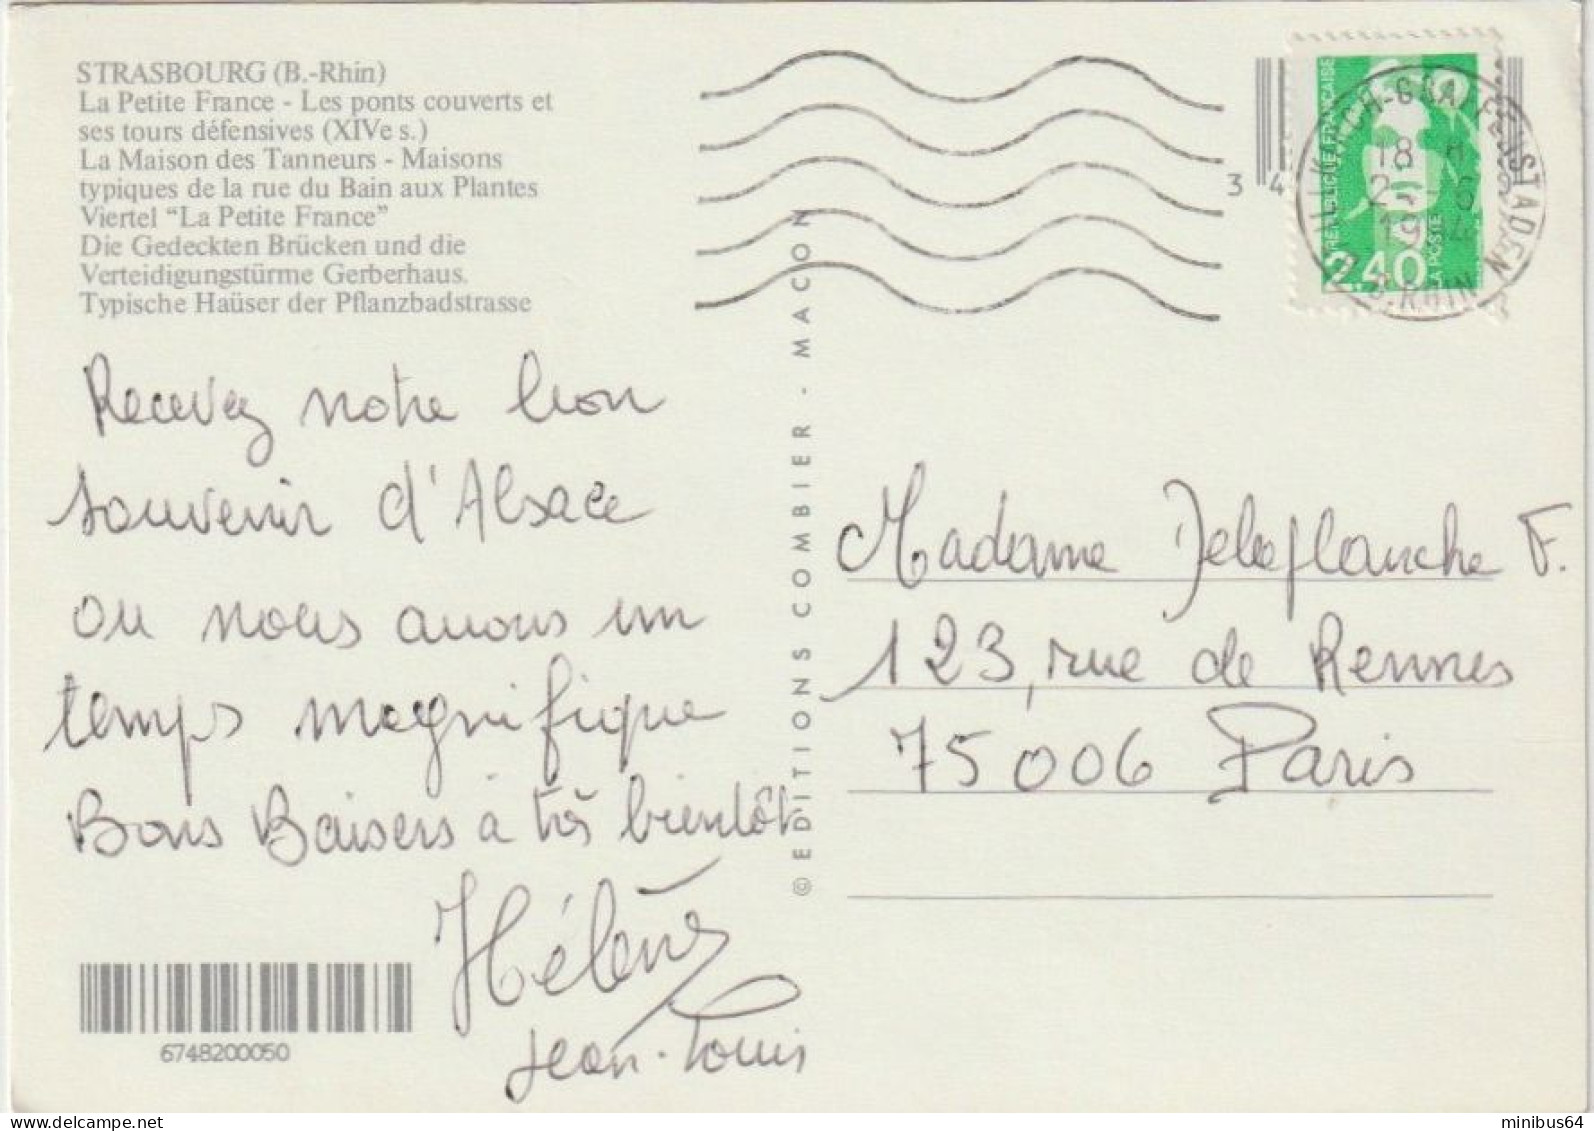 STRASBOURG (B.-Rhin)
La Petite France - Les ponts couverts et
ses tours défensives (XIVe s.)
La Maison des Tanneurs - Maisons
typiques de la rue du Bain aux Plantes
Viertel “La Petite France”
Die Gedeckten Brücken und die
Verteidigungstürme Gerberhaus.
Typische Haüser der Pflanzbadstrasse
Recevez notre bon
souvenir d'Alsace
ou nous avons un
temps magnifique
Bons Baisers à très bientôt
Hélène
Jean-Louis
6748200050
© EDITIONS COMBIER - MACON
3 4
REPUBLIQUE FRANÇAISE
2,40
LA POSTE
18 H
1994
B. RHIN
Madame Delaplanche F.
123, rue de Rennes
75006 Paris
minibus64